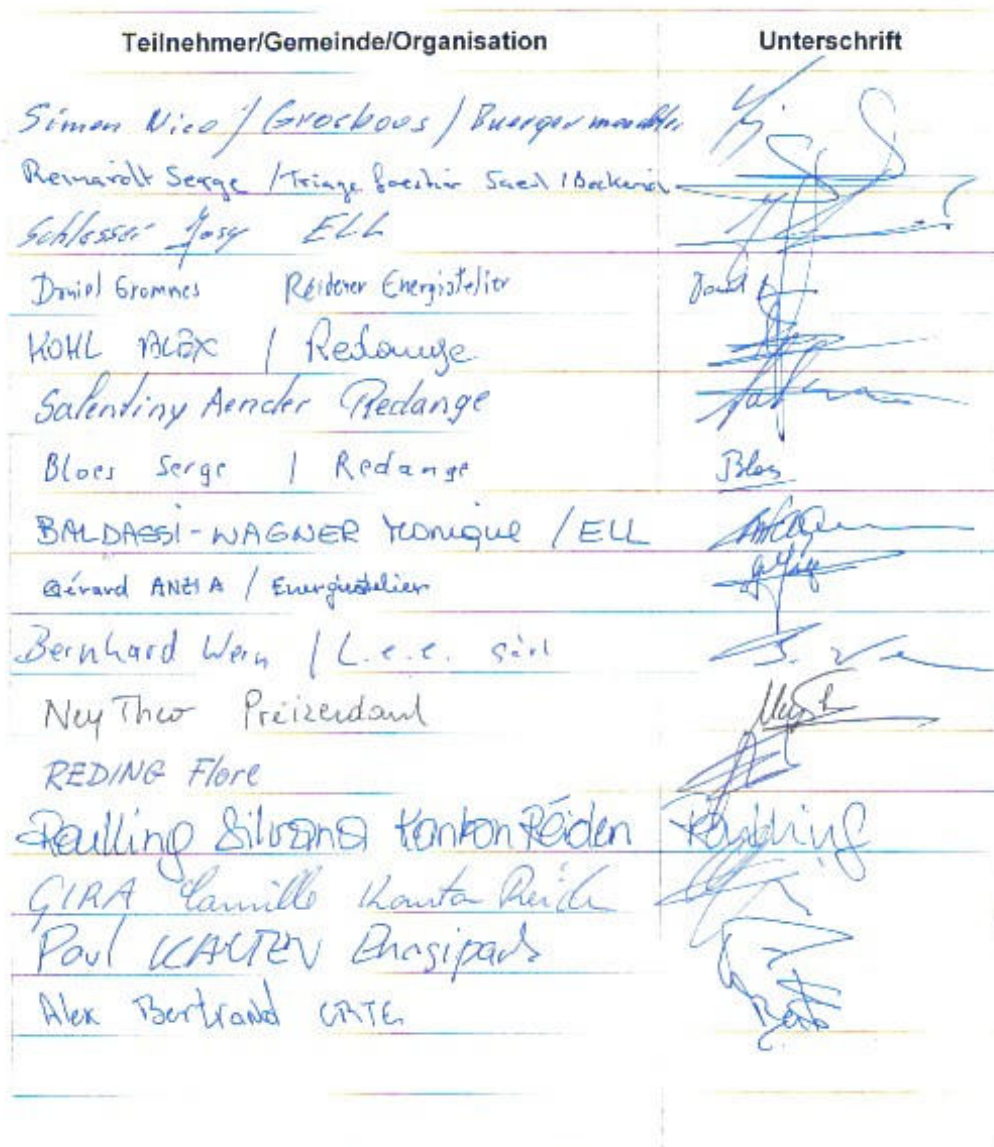 Teilnehmer/Gemeinde/Organisation Unterschrift
Simon Nico / Grosbous / Buergermeeschter
Reinardt Serge / Triage forestier Saeul / Beckerich
Schlesser Josy ELL
Daniel Grommes Réidener Energiatelier Daniel
KOHL ALEX / Redange
Salentiny Aender Redange
Bloes Serge / Redange Bloes
BALDASSI-WAGNER Monique / ELL
Gérard ANZIA / Energieatelier
Bernhard Wern / L.e.e. sàrl B. We
Ney Theo Préizerdaul
REDING Flore
Paulling Silvana Kanton Réiden Paulling
GIRA Camille Kanton Réiden
Paul KAUTEN Energipark
Alex Bertrand CRTE